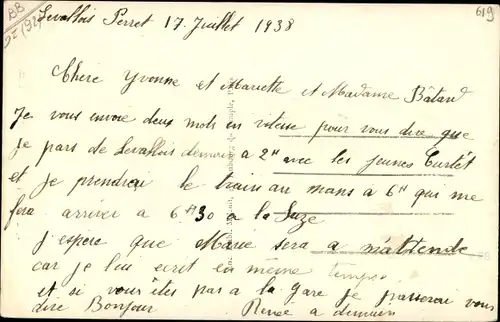 BB
619
Levallois Perret 17. Juillet 1938
Chère Yvonne et Mariette et Madame Bâtard
Je vous envoie deux mots en vitesse pour vous dire que
je pars de Levallois demain a 2H avec les jeunes
et je prendrai le train au mans a 6H qui me
fera arriver a 6H30 a la Suze
j'espère que Marie sera a m'attende
car je lui ecrit en même temps
et si vous êtes pas a la gare je passerai vous
dire Bonjour Renée a demain